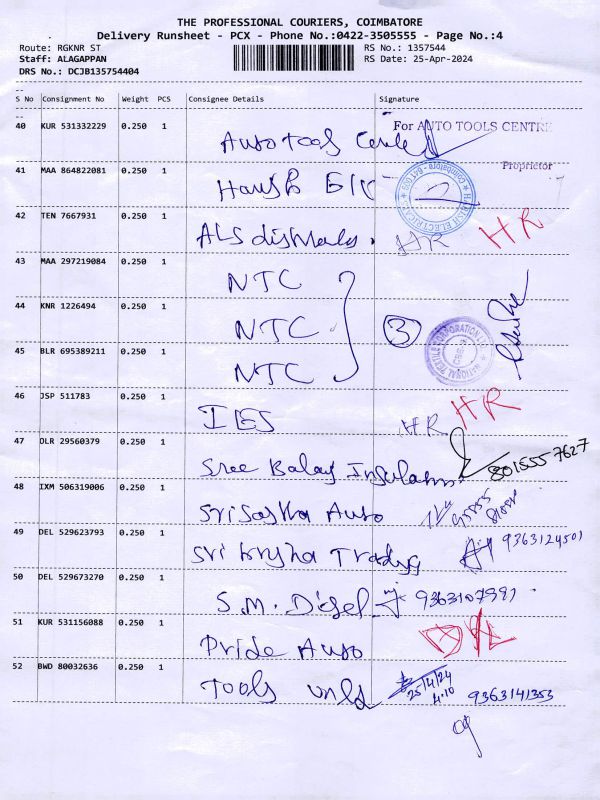 THE PROFESSIONAL COURIERS, COIMBATORE
Delivery Runsheet - PCX - Phone No.:0422-3505555 - Page No.:4
Route: RGKNR ST RS No.: 1357544
Staff: ALAGAPPAN RS Date: 25-Apr-2024
DRS No.: DCJB135754404
S No Consignment No Weight PCS Consignee Details Signature
40 KUR 531332229 0.250 1 Auto tools Centre For AUTO TOOLS CENTRE
Proprietor
41 MAA 864822081 0.250 1
42 TEN 7667931 0.250 1 ALS HR HR
43 MAA 297219084 0.250 1 NTC
44 KNR 1226494 0.250 1 NTC 3
45 BLR 695389211 0.250 1 NTC
46 JSP 511783 0.250 1 IES HR HR
47 DLR 29560379 0.250 1 Sree Balaji 8015557627
48 IXM 506319006 0.250 1 Sri Sastha Auto
49 DEL 529623793 0.250 1 Sri 9363124501
50 DEL 529673270 0.250 1 S.M. Diesel
51 KUR 531156088 0.250 1 Pride Auto
52 BWD 80032636 0.250 1 Tools 25/4/24 9363141353
4.10